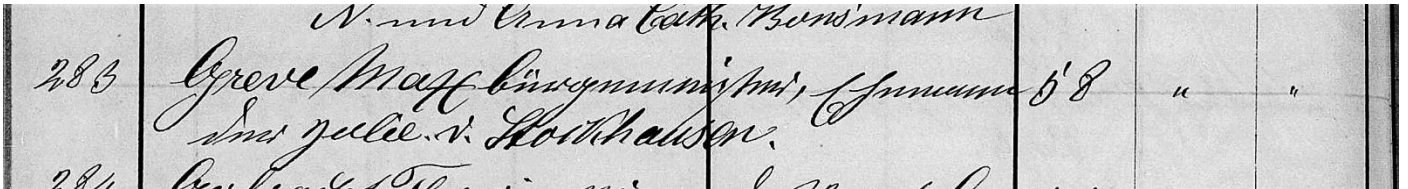 N. und Anna Cath. Bonsmann
283 Greve Max Bürgermeister, Ehemann 58 " "
der Julie v. Stockhausen.
284